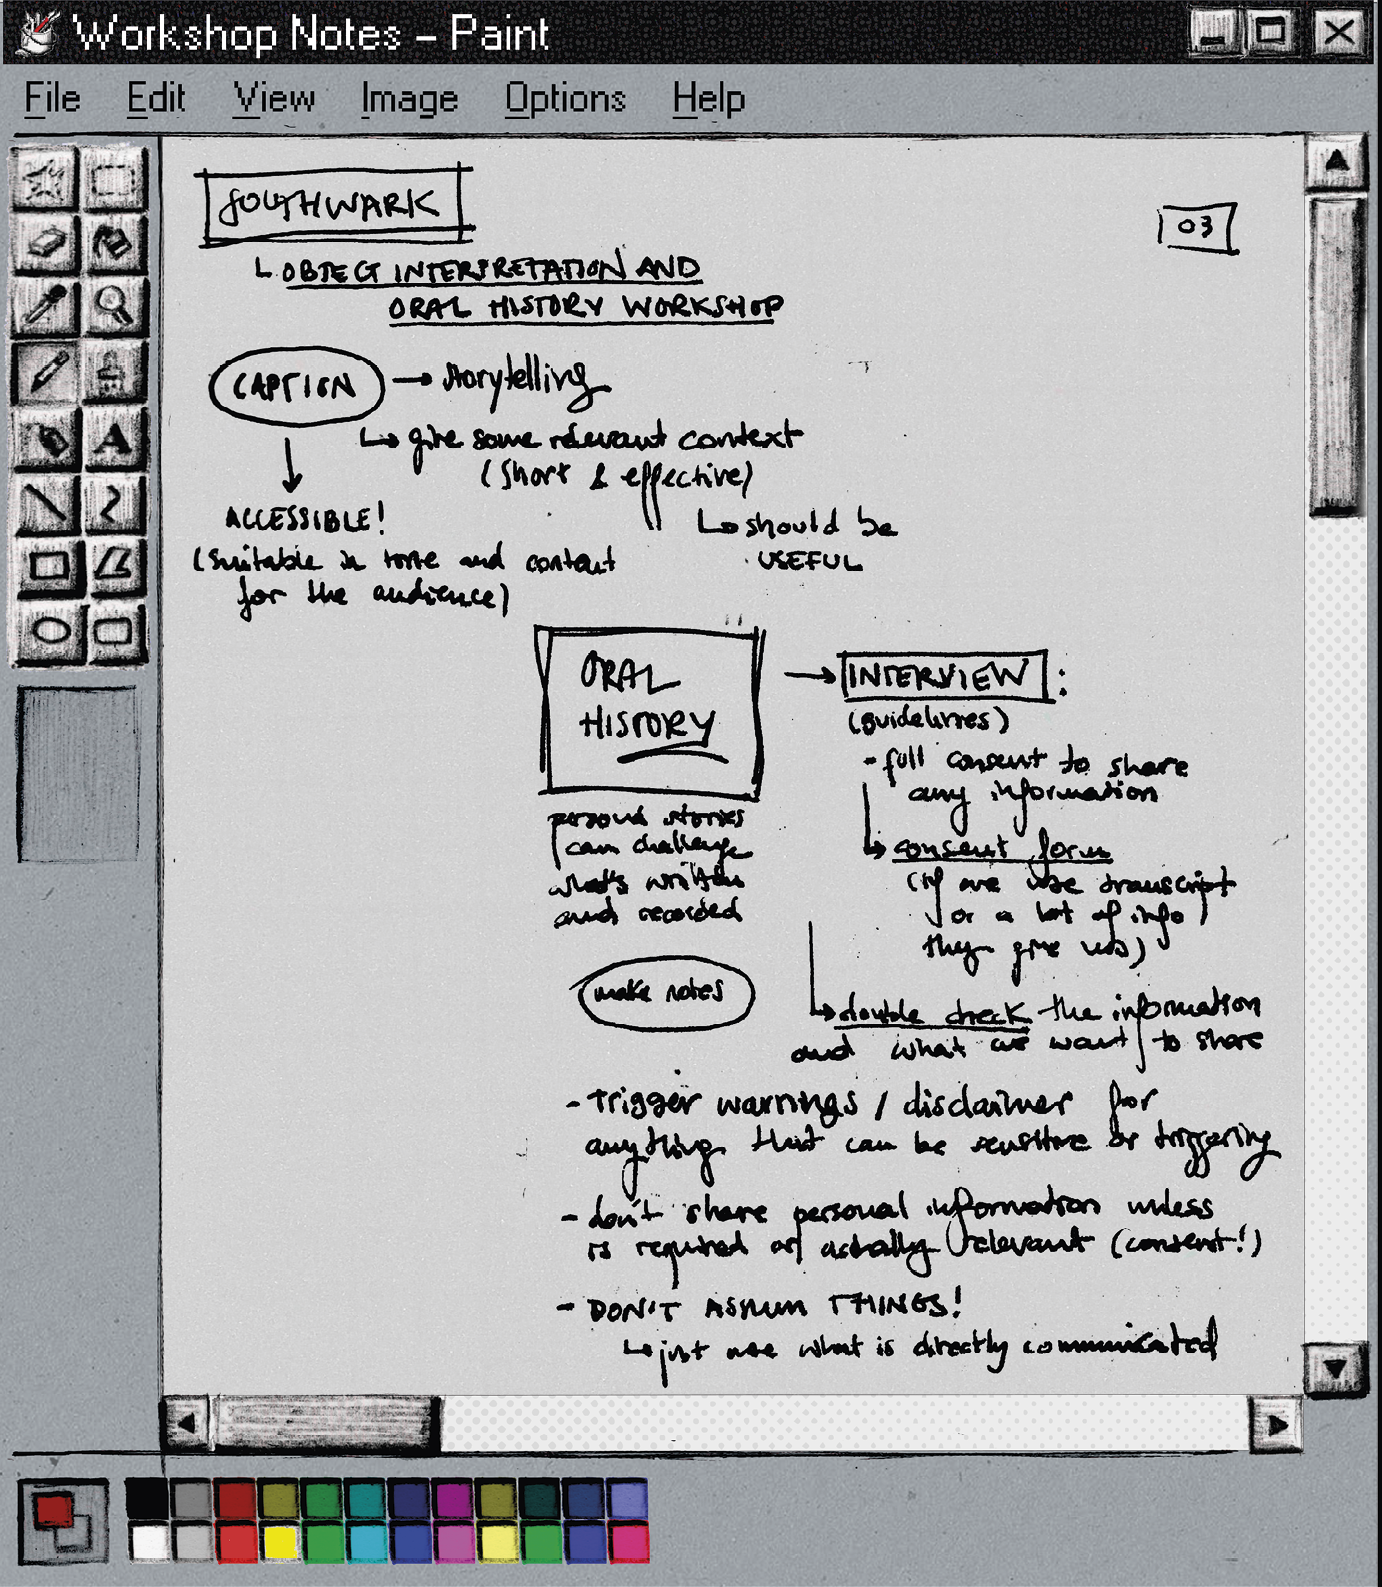 Workshop Notes – Paint
File Edit View Image Options Help
SOUTHWARK
03
OBJECT INTERPRETATION AND
ORAL HISTORY WORKSHOP
CAPTION → storytelling
↳ give some relevant context
(short & effective)
ACCESSIBLE!
↳ should be
USEFUL
(suitable in tone and content
for the audience)
ORAL
HISTORY
→ INTERVIEW:
(guidelines)
- full consent to share
any information
personal stories
can challenge
what's written
and recorded
↳ consent form
(if we use transcript
or a lot of info
they give us)
make notes
↳ double check the information
and what we want to share
- trigger warnings / disclaimer for
anything that can be sensitive or triggering
- don't share personal information unless
is required or actually relevant (consent!)
- DON'T ASSUM THINGS!
↳ just use what is directly communicated
A